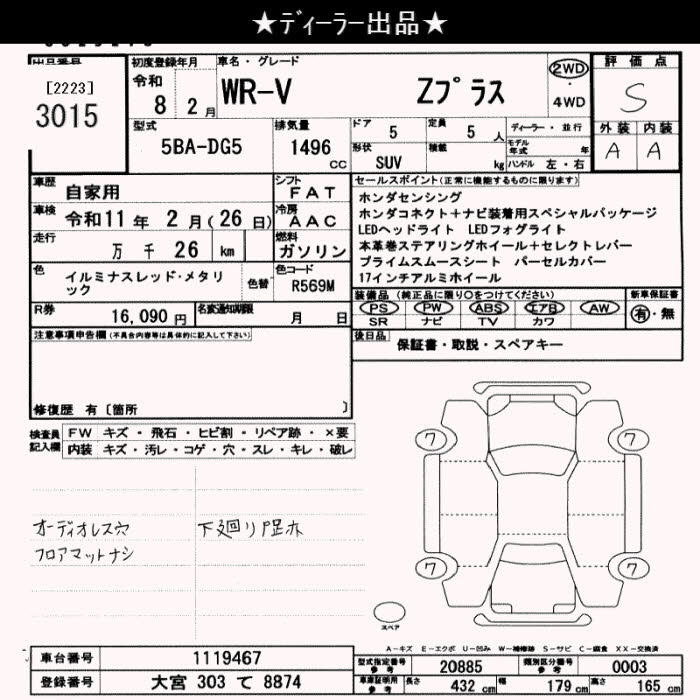 ★ディーラー出品★
出品番号 初度登録年月 車名・グレード 評価点
[2223] 令和 2WD
3015 8 2月 WR-V Zプラス ・ S
4WD
型式 排気量 ドア 5 定員 5人 ディーラー・並行 外装 内装
5BA-DG5 1496 cc 形状 SUV 積載 kg モデル年式 年 A A
ハンドル 左・右
車歴 自家用 シフト FAT セールスポイント(正常に機能するものに限ります)
車検 令和11年 2月(26日) 冷房 AAC ホンダセンシング
ホンダコネクト+ナビ装着用スペシャルパッケージ
走行 万千26 km 燃料 ガソリン LEDヘッドライト LEDフォグライト
本革巻ステアリングホイール+セレクトレバー
色 イルミナスレッド・メタリック 色替 色コード R569M プライムスムースシート パーセルカバー
17インチアルミホイール
R券 16,090円 名変通知期限 月 日 装備品(純正品に限り○をつけてください) 新車保証書
PS PW ABS エアB AW 有・無
SR ナビ TV カワ
注意事項申告欄(不具合内容等は具体的に記入して下さい) 後日品 保証書・取説・スペアキー
修復歴 有〔箇所 〕
検査員記入欄 FW キズ・飛石・ヒビ割・リペア跡・×要
内装 キズ・汚レ・コゲ・穴・スレ・キレ・破レ
7 7
オーディオレス穴 下廻りP足ホ
フロアマットナシ
7 7
スペア
A-キズ E-エクボ U-凹み W-補修跡 S-サビ C-腐食 XX-交換済
車台番号 1119467 型式指定番号 参考 20885 類別区分番号 参考 0003
登録番号 大宮 303 て 8874 車庫証明用 参考 長さ 432 cm 幅 179 cm 高さ 165 cm